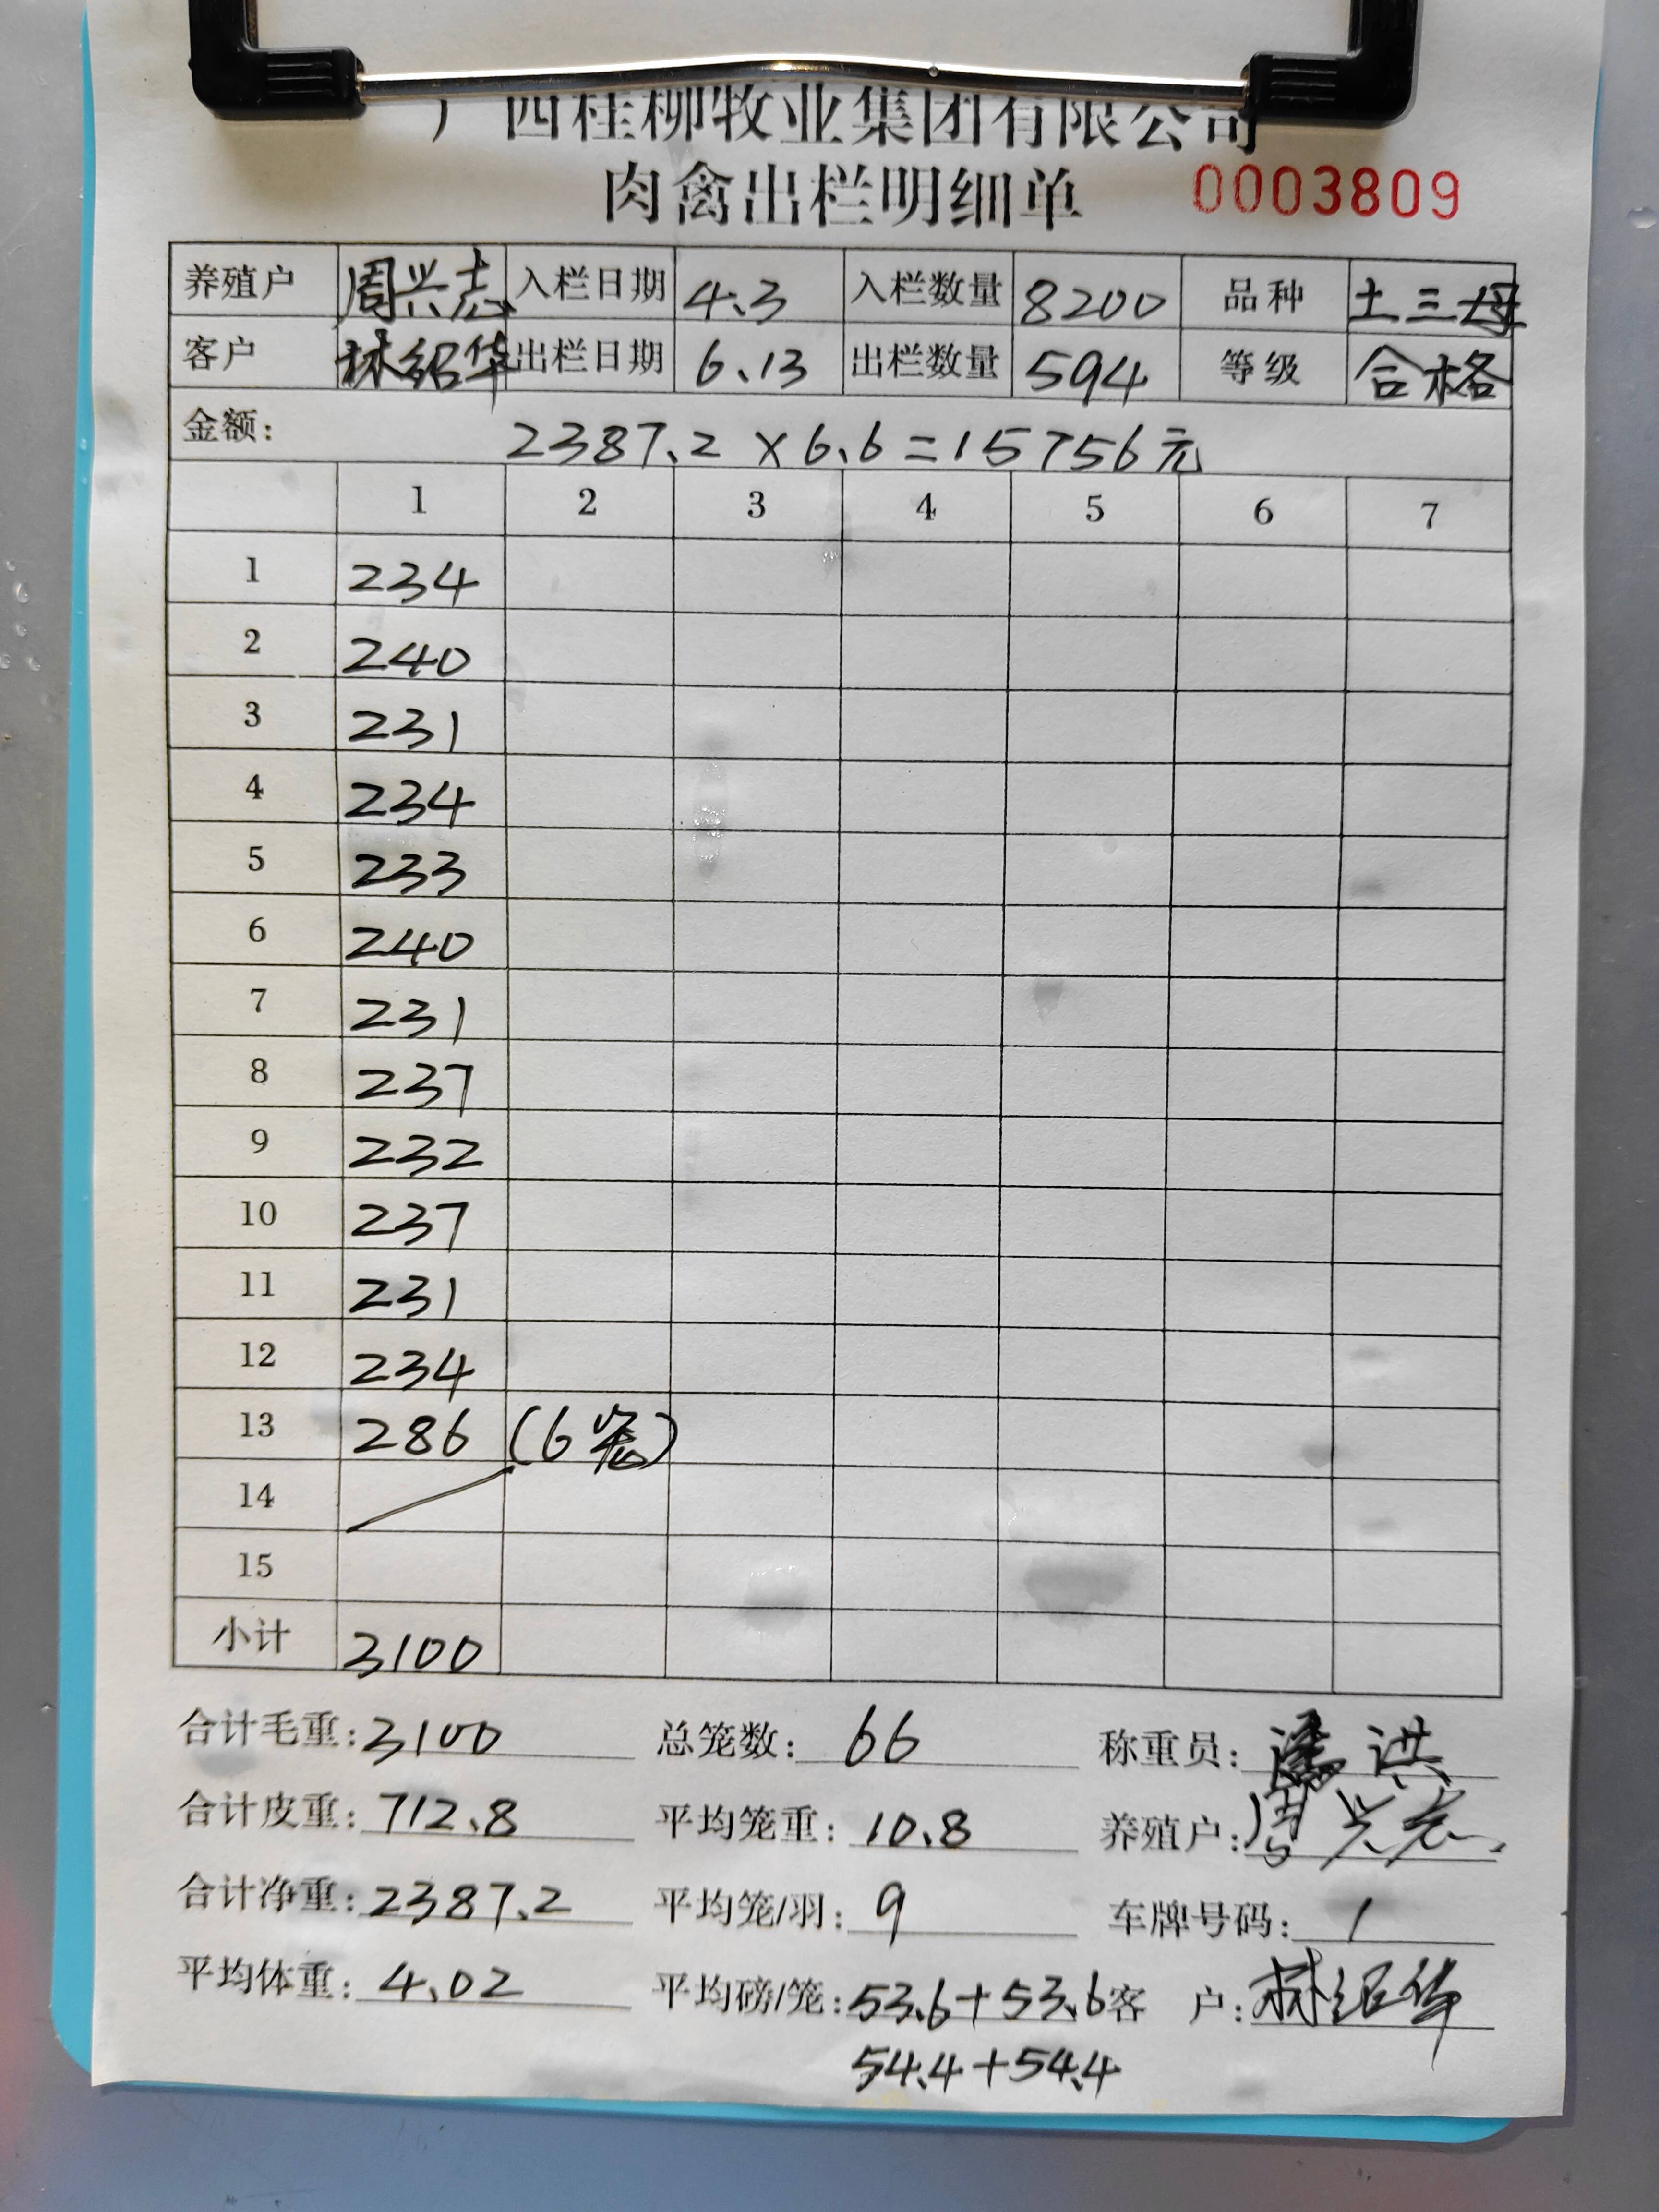 广西桂柳牧业集团有限公司
肉禽出栏明细单 0003809
养殖户 周兴志 入栏日期 4.3 入栏数量 8200 品种 土三母
客户 林绍华 出栏日期 6.13 出栏数量 594 等级 合格
金额: 2387.2×6.6=15756元
1 2 3 4 5 6 7
1 234
2 240
3 231
4 234
5 233
6 240
7 231
8 237
9 232
10 237
11 231
12 234
13 286 (6笼)
14
15
小计 3100
合计毛重: 3100 总笼数: 66 称重员: 潘洪
合计皮重: 712.8 平均笼重: 10.8 养殖户: 周兴志
合计净重: 2387.2 平均笼/羽: 9 车牌号码: 1
平均体重: 4.02 平均磅/笼: 53.6+53.6 客 户: 林绍华
54.4+54.4